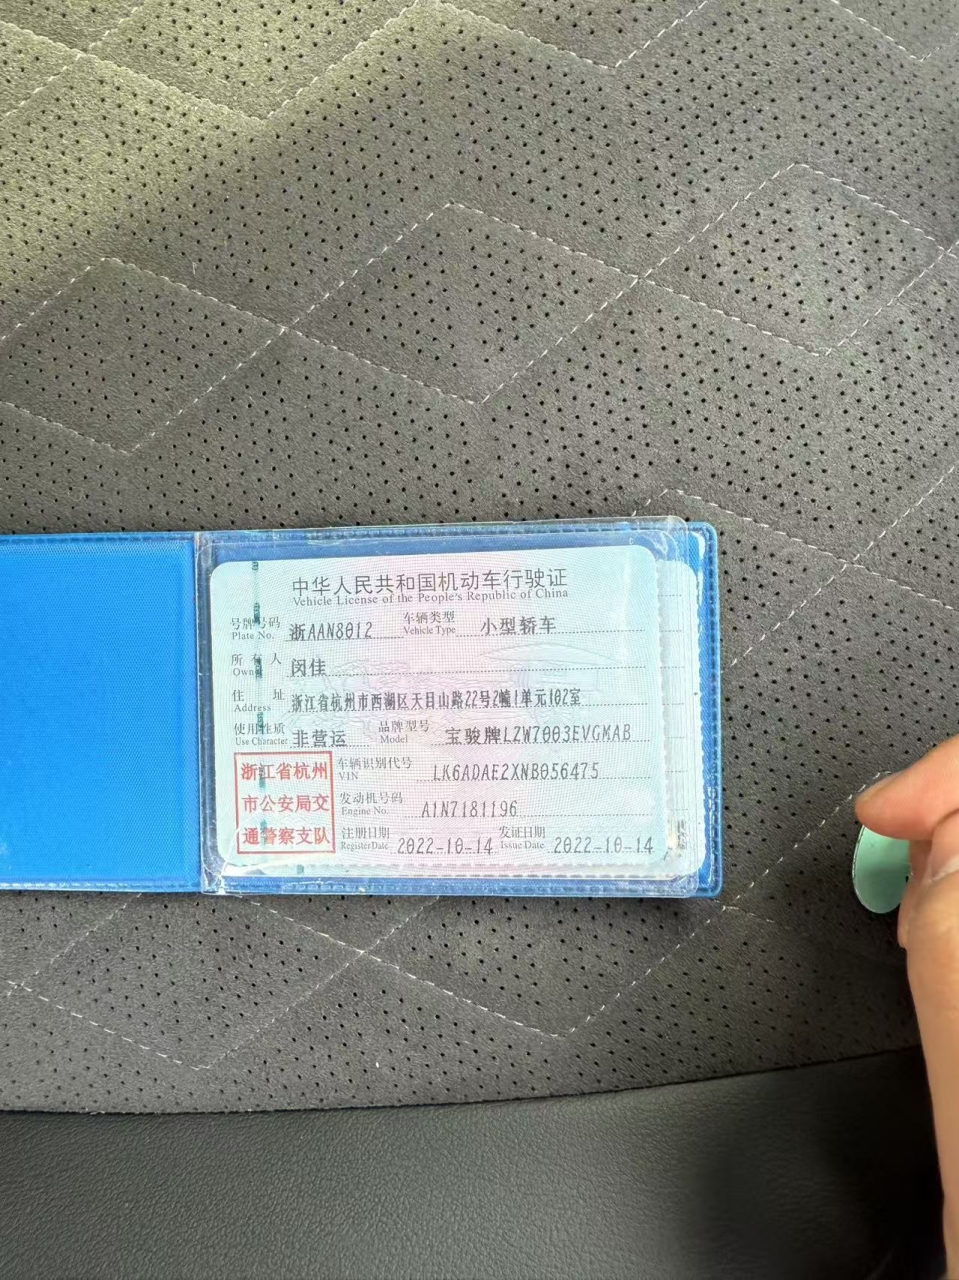 中华人民共和国机动车行驶证
Vehicle License of the People's Republic of China
号牌号码 浙AAN8012 车辆类型 小型轿车
Plate No. Vehicle Type
所有人 闵佳
Owner
住址 浙江省杭州市西湖区天目山路22号2幢1单元102室
Address
使用性质 非营运 品牌型号 宝骏牌LZW7003EVGMAB
Use Character Model
浙江省杭州
市公安局交
通警察支队
车辆识别代号 LK6ADAE2XNB056475
VIN
发动机号码 A1N7181196
Engine No.
注册日期 2022-10-14 发证日期 2022-10-14
Register Date Issue Date